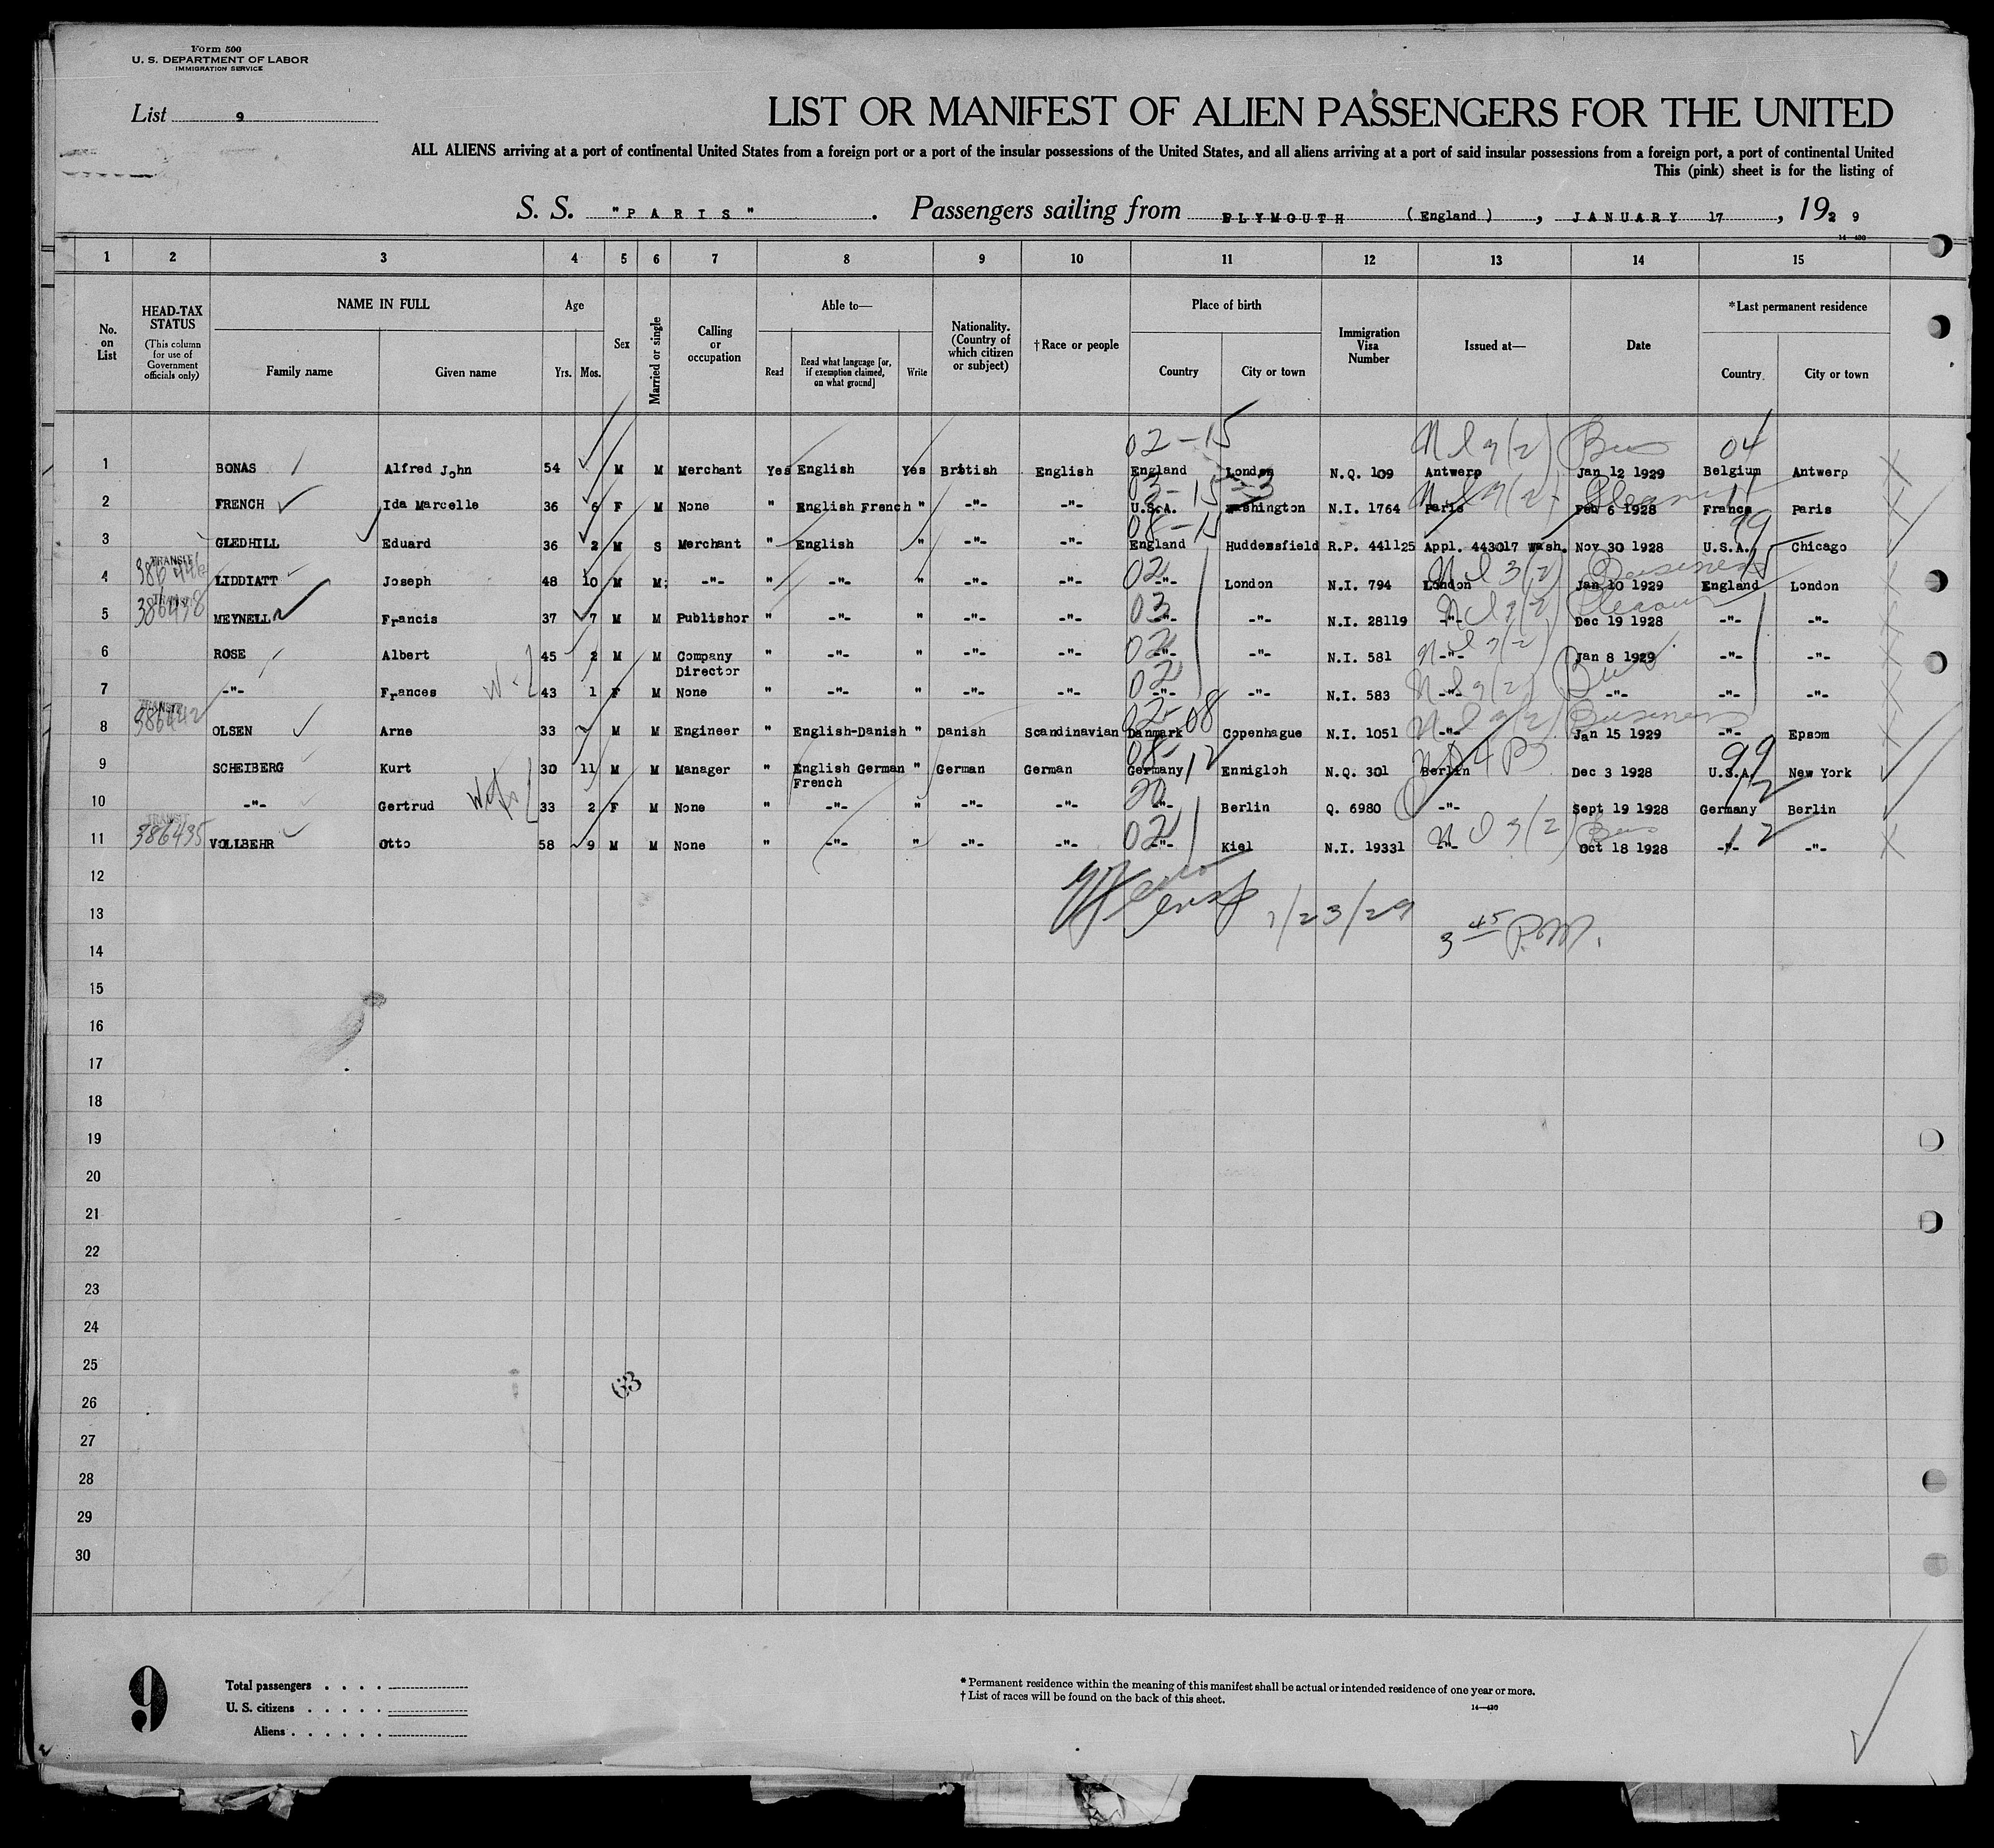 Form 500
U. S. DEPARTMENT OF LABOR
IMMIGRATION SERVICE
List 9
LIST OR MANIFEST OF ALIEN PASSENGERS FOR THE UNITED
ALL ALIENS arriving at a port of continental United States from a foreign port or a port of the insular possessions of the United States, and all aliens arriving at a port of said insular possessions from a foreign port, a port of continental United
This (pink) sheet is for the listing of
S. S. "PARIS". Passengers sailing from PLYMOUTH (England), JANUARY 17, 1929
14-430
1 2 3 4 5 6 7 8 9 10 11 12 13 14 15
No. on List
HEAD-TAX STATUS (This column for use of Government officials only)
NAME IN FULL Family name Given name
Age Yrs. Mos.
Sex
Married or single
Calling or occupation
Able to— Read Read what language [or, if exemption claimed, on what ground] Write
Nationality. (Country of which citizen or subject)
†Race or people
Place of birth Country City or town
Immigration Visa Number
Issued at—
Date
*Last permanent residence Country City or town
02-15 Nl 3(2) Bus 04
1 BONAS Alfred John 54 M M Merchant Yes English Yes British English England London N.Q. 109 Antwerp Jan 12 1929 Belgium Antwerp
03-15
2 FRENCH Ida Marcelle 36 6 F M None " English French " -"- -"- U.S.A. Washington N.I. 1764 Paris Feb 6 1928 France Paris
08-15 99
3 GLEDHILL Eduard 36 2 M S Merchant " English " -"- -"- England Huddensfield R.P. 441125 Appl. 443017 Wash. Nov 30 1928 U.S.A. Chicago
TRANSIT 02 Nl 3(2) Business
4 LIDDIATT Joseph 48 10 M M -"- " -"- " -"- -"- -"- London N.I. 794 London Jan 10 1929 England London
386438 03 Nl 3(2) Pleasure
5 MEYNELL Francis 37 7 M M Publishor " -"- " -"- -"- -"- -"- N.I. 28119 -"- Dec 19 1928 -"- -"-
02 Nl 3(2)
6 ROSE Albert 45 2 M M Company Director " -"- " -"- -"- -"- -"- N.I. 581 -"- Jan 8 1929 -"- -"-
02 Nl 3(2) Bus
7 -"- Frances 43 1 F M None " -"- " -"- -"- -"- -"- N.I. 583 -"- -"- -"- -"-
TRANSIT 386442 02-08 Nl 3(2) Business
8 OLSEN Arne 33 M M Engineer " English-Danish " Danish Scandinavian Danmark Copenhague N.I. 1051 -"- Jan 15 1929 -"- Epsom
08-12 99
9 SCHEIBERG Kurt 30 11 M M Manager " English German French " German German Germany Ennigloh N.Q. 301 Berlin Dec 3 1928 U.S.A. New York
20 12
10 -"- Gertrud 33 2 F M None " -"- " -"- -"- -"- Berlin Q. 6980 -"- Sept 19 1928 Germany Berlin
TRANSIT 386435 02 Nl 3(2) Bus 12
11 VOLLBEHR Otto 58 9 M M None " -"- " -"- -"- -"- Kiel N.I. 19331 -"- Oct 18 1928 -"- -"-
12
13 1/23/29
14 3 45 P.M.
15
16
17
18
19
20
21
22
23
24
25
63
26
27
28
29
30
9
Total passengers
U. S. citizens
Aliens
* Permanent residence within the meaning of this manifest shall be actual or intended residence of one year or more.
† List of races will be found on the back of this sheet.
14-430